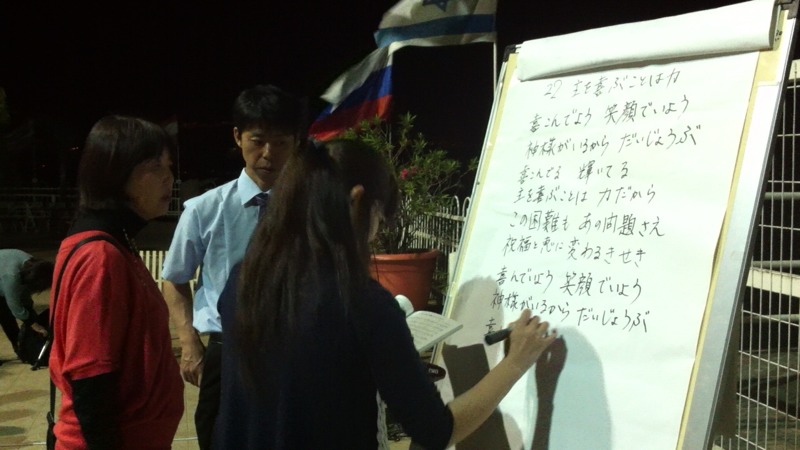 22 主を喜ぶことは力
喜こんでよう 笑顔でいよう
神様がいるから だいじょうぶ
喜こんでる 輝いてる
主を喜ぶことは 力だから
この困難も あの問題さえ
祝福と恵に変わるきせき
喜んでいよう 笑顔でいよう
神様がいるから だいじょうぶ
喜